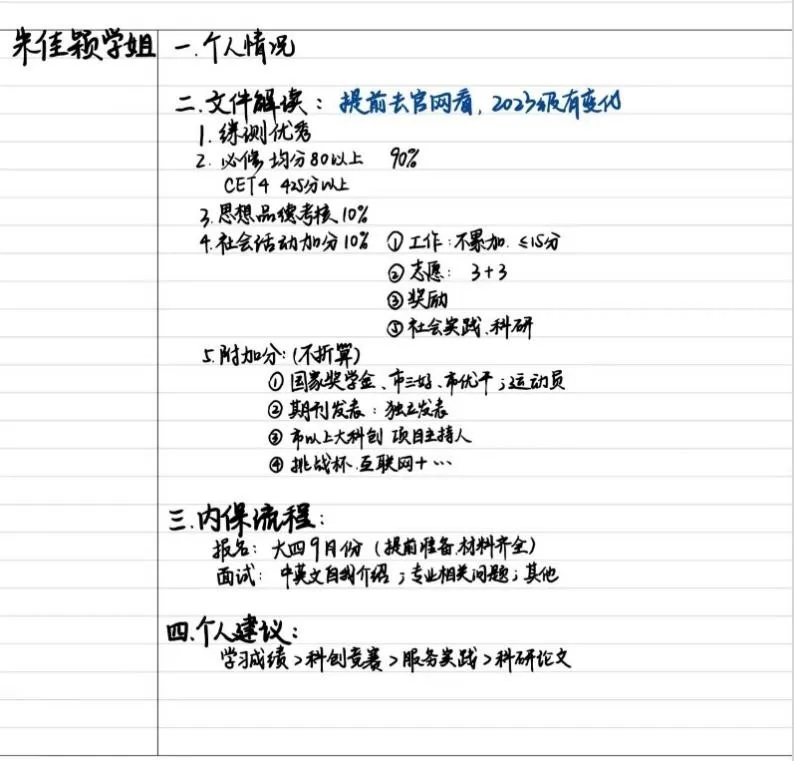 朱佳颖学姐
一.个人情况
二.文件解读：提前去官网看，2023级有变化
1. 综测优秀
2. 必修均分80以上 90%
CET4 425分以上
3.思想品德考核10%
4.社会活动加分10% ①工作：不累加.≤15分
②志愿：3+3
③奖励
⑤社会实践、科研
5.附加分：(不折算)
①国家奖学金、市三好、市优干；运动员
②期刊发表：独立发表
③市以上大科创 项目主持人
④挑战杯.互联网+…
三.内保流程：
报名：大四9月份（提前准备.材料齐全）
面试：中英文自我介绍；专业相关问题；其他
四.个人建议：
学习成绩>科创竞赛>服务实践>科研论文